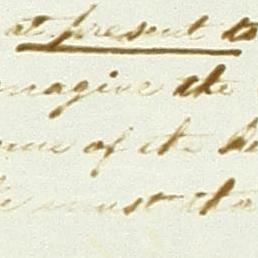 at present to
imagine the
of the
must tha